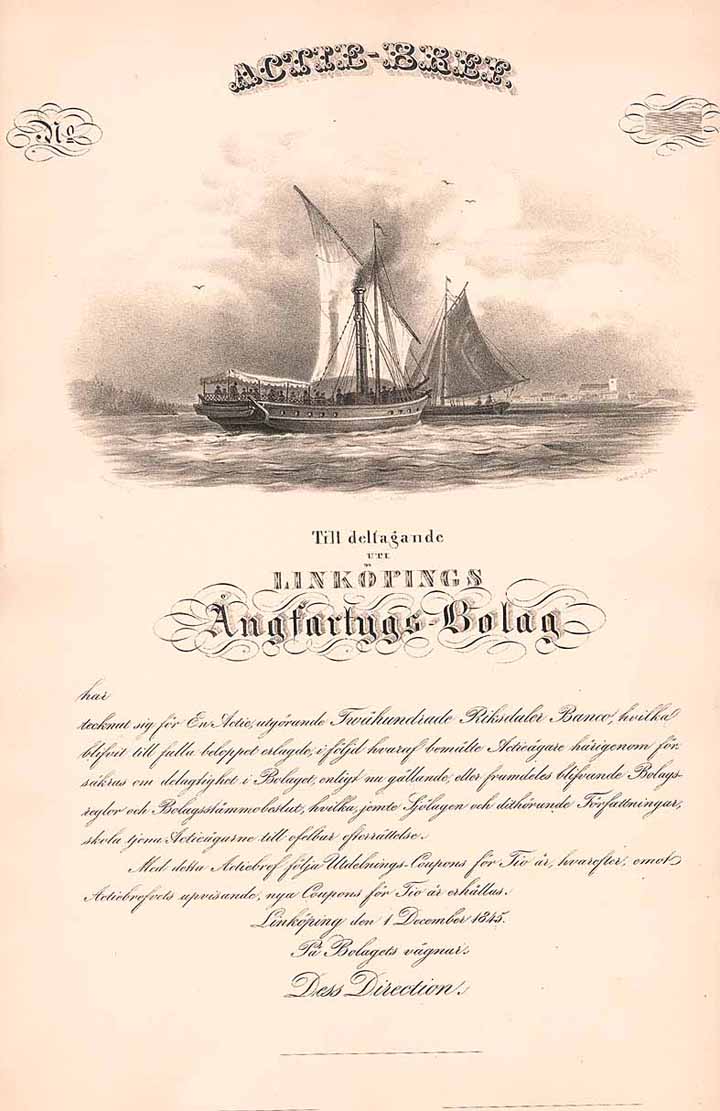 ACTIE-BREF.
No
Till deltagande
UTI
LINKÖPINGS
Ångfartygs-Bolag
har
tecknat sig för En Actie, utgörande Twåhundrade Riksdaler Banco, hvilka
blifvit till fulla beloppet erlagde, i följd hvaraf bemälte Actieägare härigenom för-
säkras om delagtighet i Bolaget, enligt nu gällande, eller framdeles blifvande Bolags-
reglor och Bolagsstämmobeslut, hvilka, jemte Sjölagen och dithörande Författningar,
skola tjena Actieägarne till ofelbar efterrättelse.
Med detta Actiebref följa Utdelnings-Coupons för Tio år, hvarefter, emot
Actiebrefvets upvisande, nya Coupons för Tio år erhållas.
Linköping den 1 December 1845.
På Bolagets vägnar.
Dess Direction.